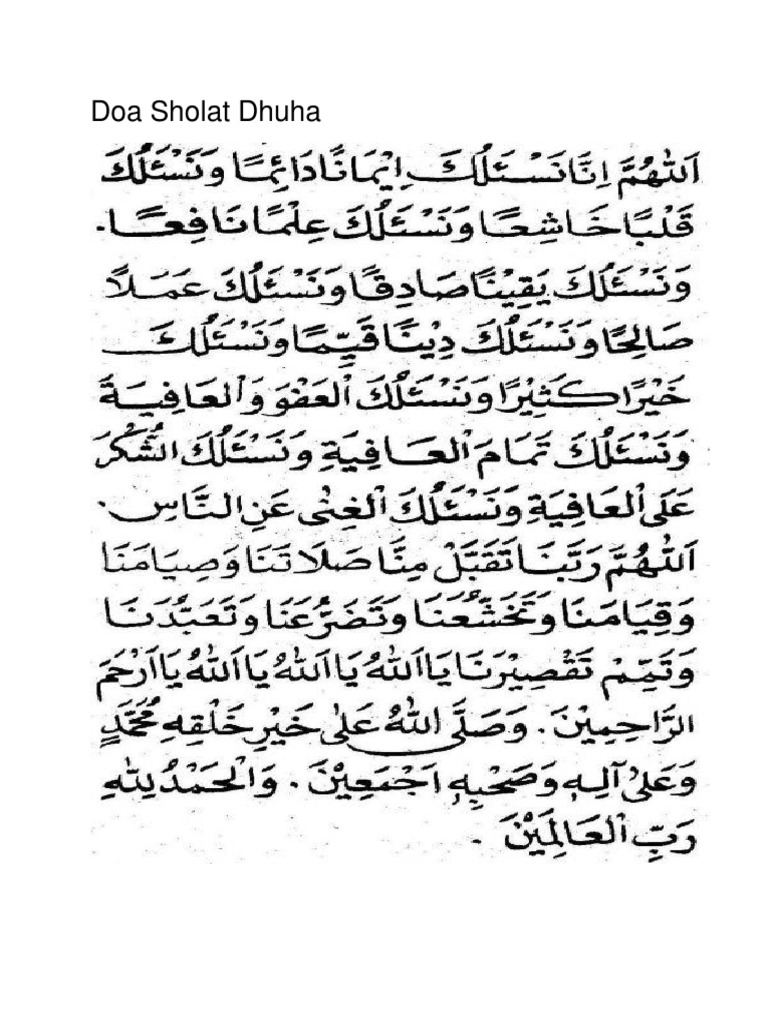 Doa Sholat Dhuha
اَللّٰهُمَّ اِنَّا نَسْئَلُكَ اِيْمَانًا دَائِمًا وَنَسْئَلُكَ
قَلْبًا خَاشِعًا وَنَسْئَلُكَ عِلْمًا نَافِعًا.
وَنَسْئَلُكَ يَقِيْنًا صَادِقًا وَنَسْئَلُكَ عَمَلاً
صَالِحًا وَنَسْئَلُكَ دِيْنًا قَيِّمًا وَنَسْئَلُكَ
خَيْرًا كَثِيْرًا وَنَسْئَلُكَ الْعَفْوَ وَالْعَافِيَةَ
وَنَسْئَلُكَ تَمَامَ الْعَافِيَةِ وَنَسْئَلُكَ الشُّكْرَ
عَلَى الْعَافِيَةِ وَنَسْئَلُكَ الْغِنٰى عَنِ النَّاسِ.
اَللّٰهُمَّ رَبَّنَا تَقَبَّلْ مِنَّا صَلَاتَنَا وَصِيَامَنَا
وَقِيَامَنَا وَتَخَشُّعَنَا وَتَضَرُّعَنَا وَتَعَبُّدَنَا
وَتَمِّمْ تَقْصِيْرَنَا يَا اَللّٰهُ يَا اَللّٰهُ يَا اَللّٰهُ يَا اَرْحَمَ
الرَّاحِمِيْنَ. وَصَلَّى اللّٰهُ عَلٰى خَيْرِ خَلْقِهِ مُحَمَّدٍ
وَعَلٰى آلِهِ وَصَحْبِهِ اَجْمَعِيْنَ. وَالْحَمْدُ لِلّٰهِ
رَبِّ الْعَالَمِيْنَ.